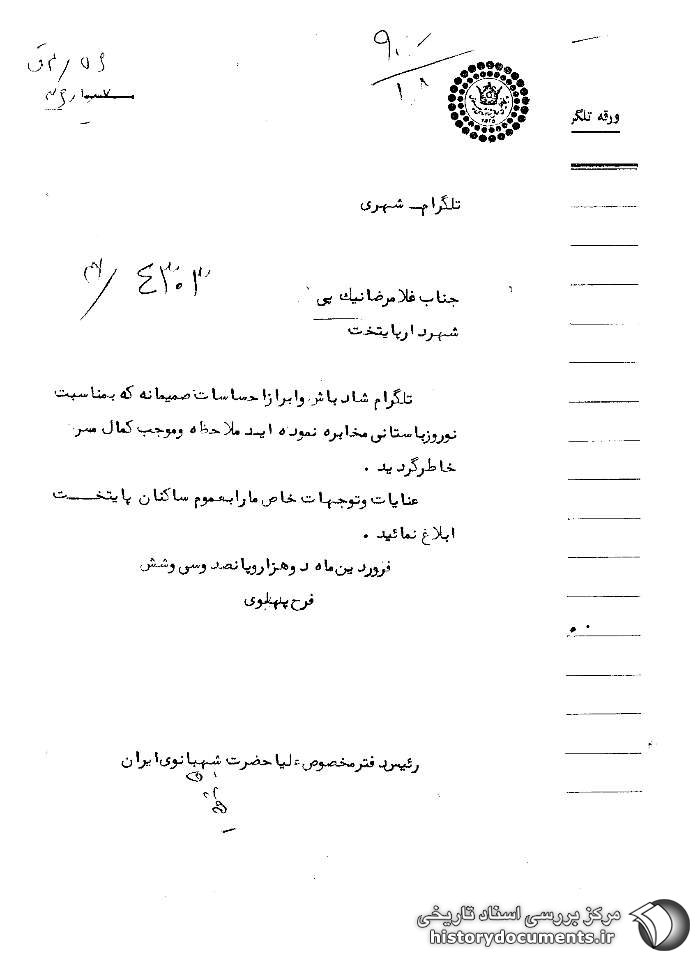 ورقه تلگر
تلگرام شهری
جناب غلامرضا نیک پی
شهردار پایتخت
تلگرام شادباش و ابراز احساسات صمیمانه که بمناسبت
نوروز باستانی مخابره نموده اید ملاحظه و موجب کمال مسر
خاطر گردید .
عنایات و توجهات خاص ما را بعموم ساکنان پایتخت
ابلاغ نمائید .
فروردین ماه دوهزار و پانصد و سی و شش
فرح پهلوی
رئیس دفتر مخصوص علیا حضرت شهبانوی ایران
مرکز بررسی اسناد تاریخی
historydocuments.ir